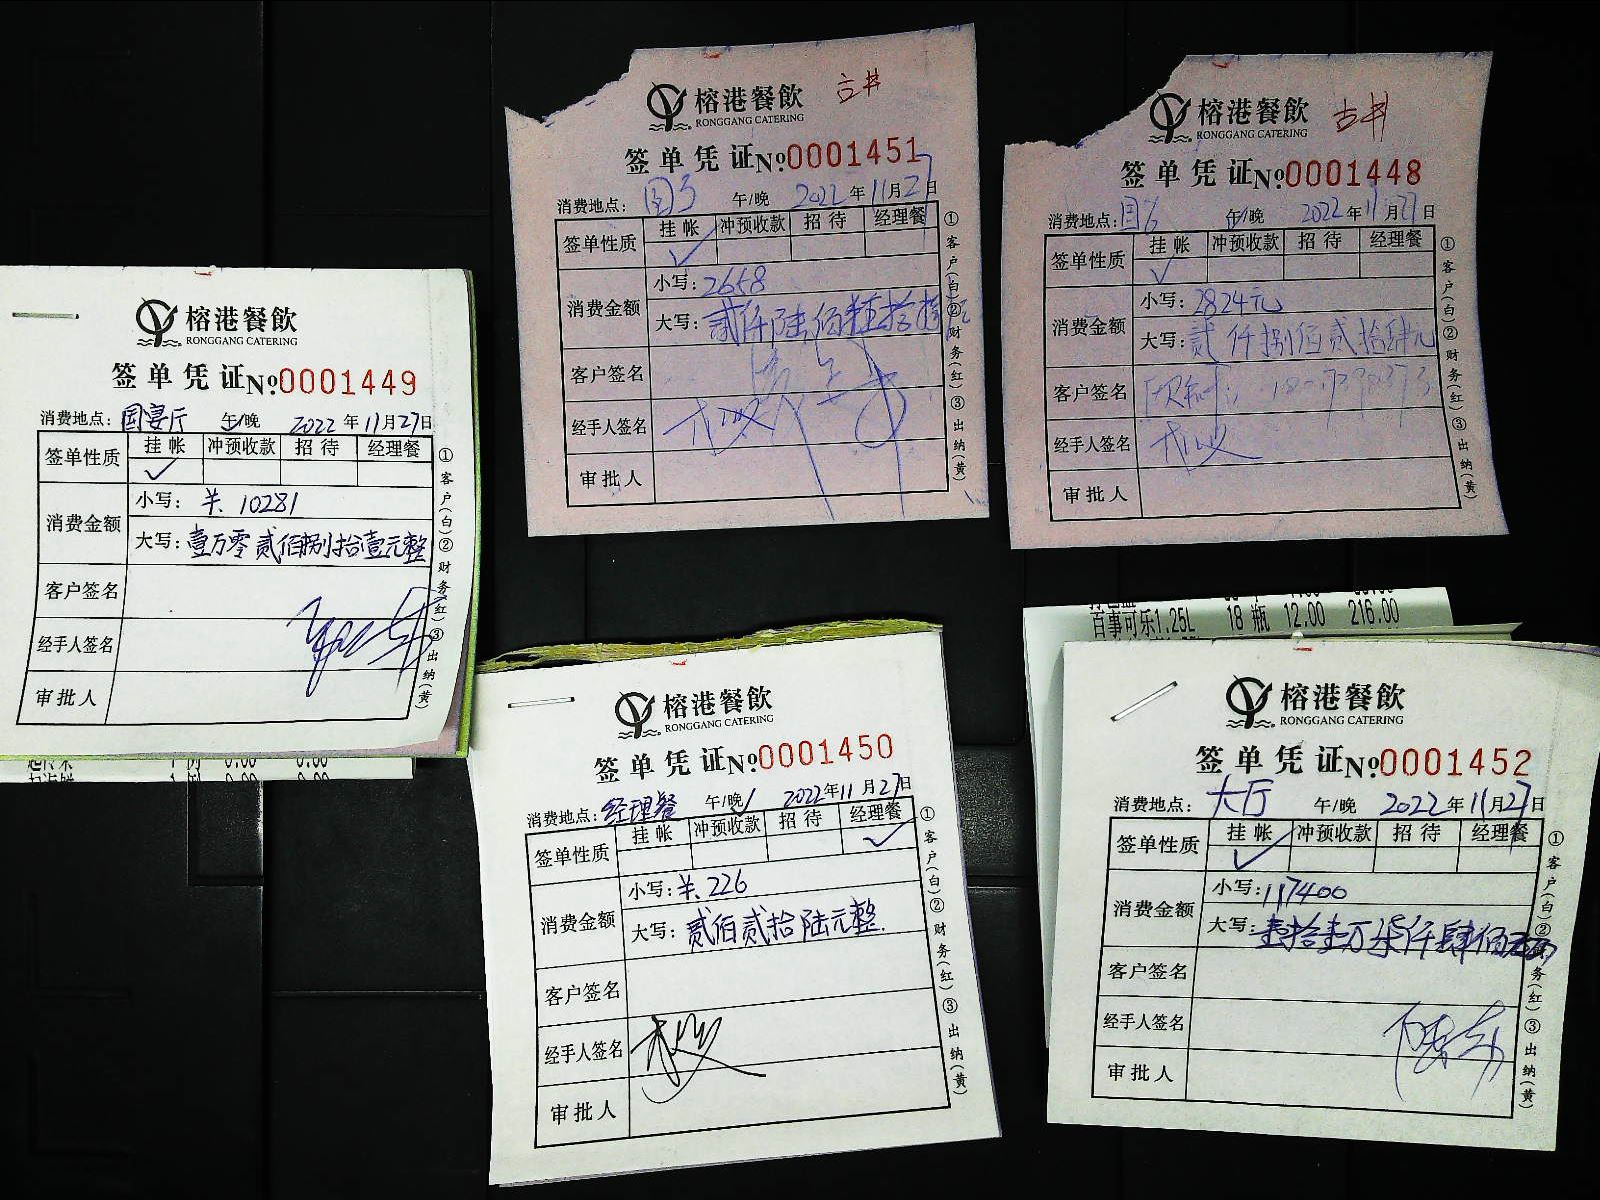 榕港餐飲 古井
RONGGANG CATERING
签单凭证 №0001451
消费地点: 国3 午/晚 2022年11月27日
签单性质 挂帐 冲预收款 招待 经理餐
✓
消费金额 小写: 2658
大写: 贰仟陆佰
客户签名
经手人签名
审批人
①客户(白)②财务(红)③出纳(黄)
榕港餐飲 古井
RONGGANG CATERING
签单凭证 №0001448
消费地点: 国6 午/晚 2022年11月27日
签单性质 挂帐 冲预收款 招待 经理餐
✓
消费金额 小写: 2824元
大写: 贰仟捌佰贰拾肆元
客户签名
经手人签名
审批人
①客户(白)②财务(红)③出纳(黄)
榕港餐飲
RONGGANG CATERING
签单凭证 №0001449
消费地点: 国宴厅 午/晚 2022年11月27日
签单性质 挂帐 冲预收款 招待 经理餐
✓
消费金额 小写: ¥.10281
大写: 壹万零贰佰捌拾壹元整
客户签名
经手人签名
审批人
①客户(白)②财务(红)③出纳(黄)
榕港餐飲
RONGGANG CATERING
签单凭证 №0001450
消费地点: 经理餐 午/晚✓ 2022年11月27日
签单性质 挂帐 冲预收款 招待 经理餐
✓
消费金额 小写: ¥.226
大写: 贰佰贰拾陆元整.
客户签名
经手人签名
审批人
①客户(白)②财务(红)③出纳(黄)
百事可乐1.25L 18 瓶 12.00 216.00
榕港餐飲
RONGGANG CATERING
签单凭证 №0001452
消费地点: 大厅 午/晚 2022年11月27日
签单性质 挂帐 冲预收款 招待 经理餐
✓
消费金额 小写: 117400
大写: 壹拾壹万柒仟肆佰
客户签名
经手人签名
审批人
①客户(白)②财务(红)③出纳(黄)